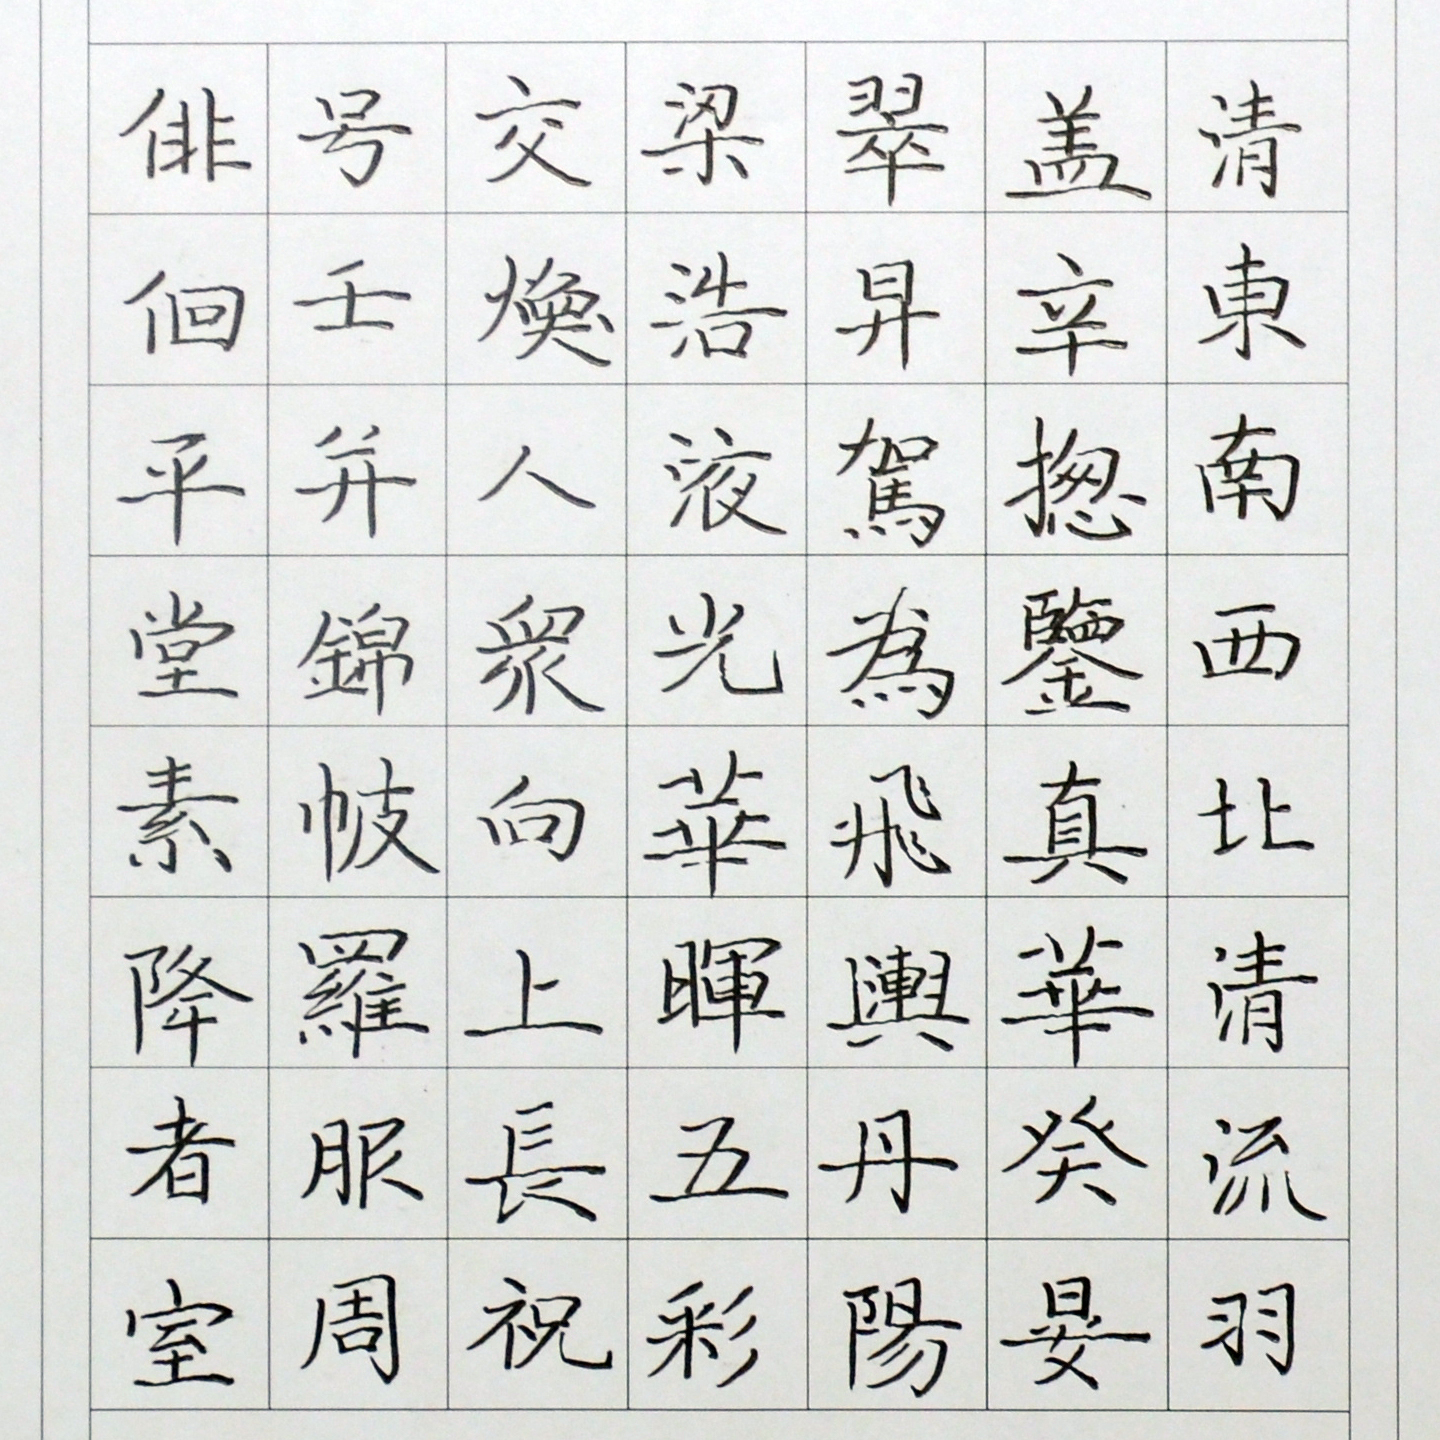 清東南西北清流羽
盖辛揔鑒真華癸晏
翠昇駕為飛輿丹陽
梁浩液光華暉五彩
交煥人衆向上長祝
号壬并錦帔羅服周
俳佪平堂素降者室